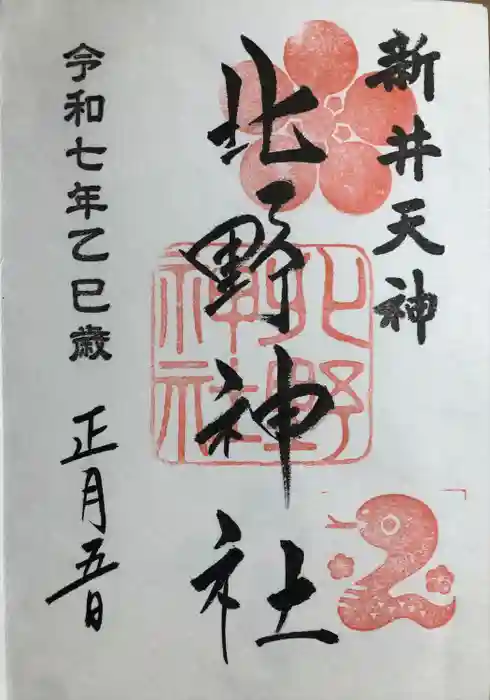 新井天神
北野神社
北野神社
令和七年乙巳歳 正月五日